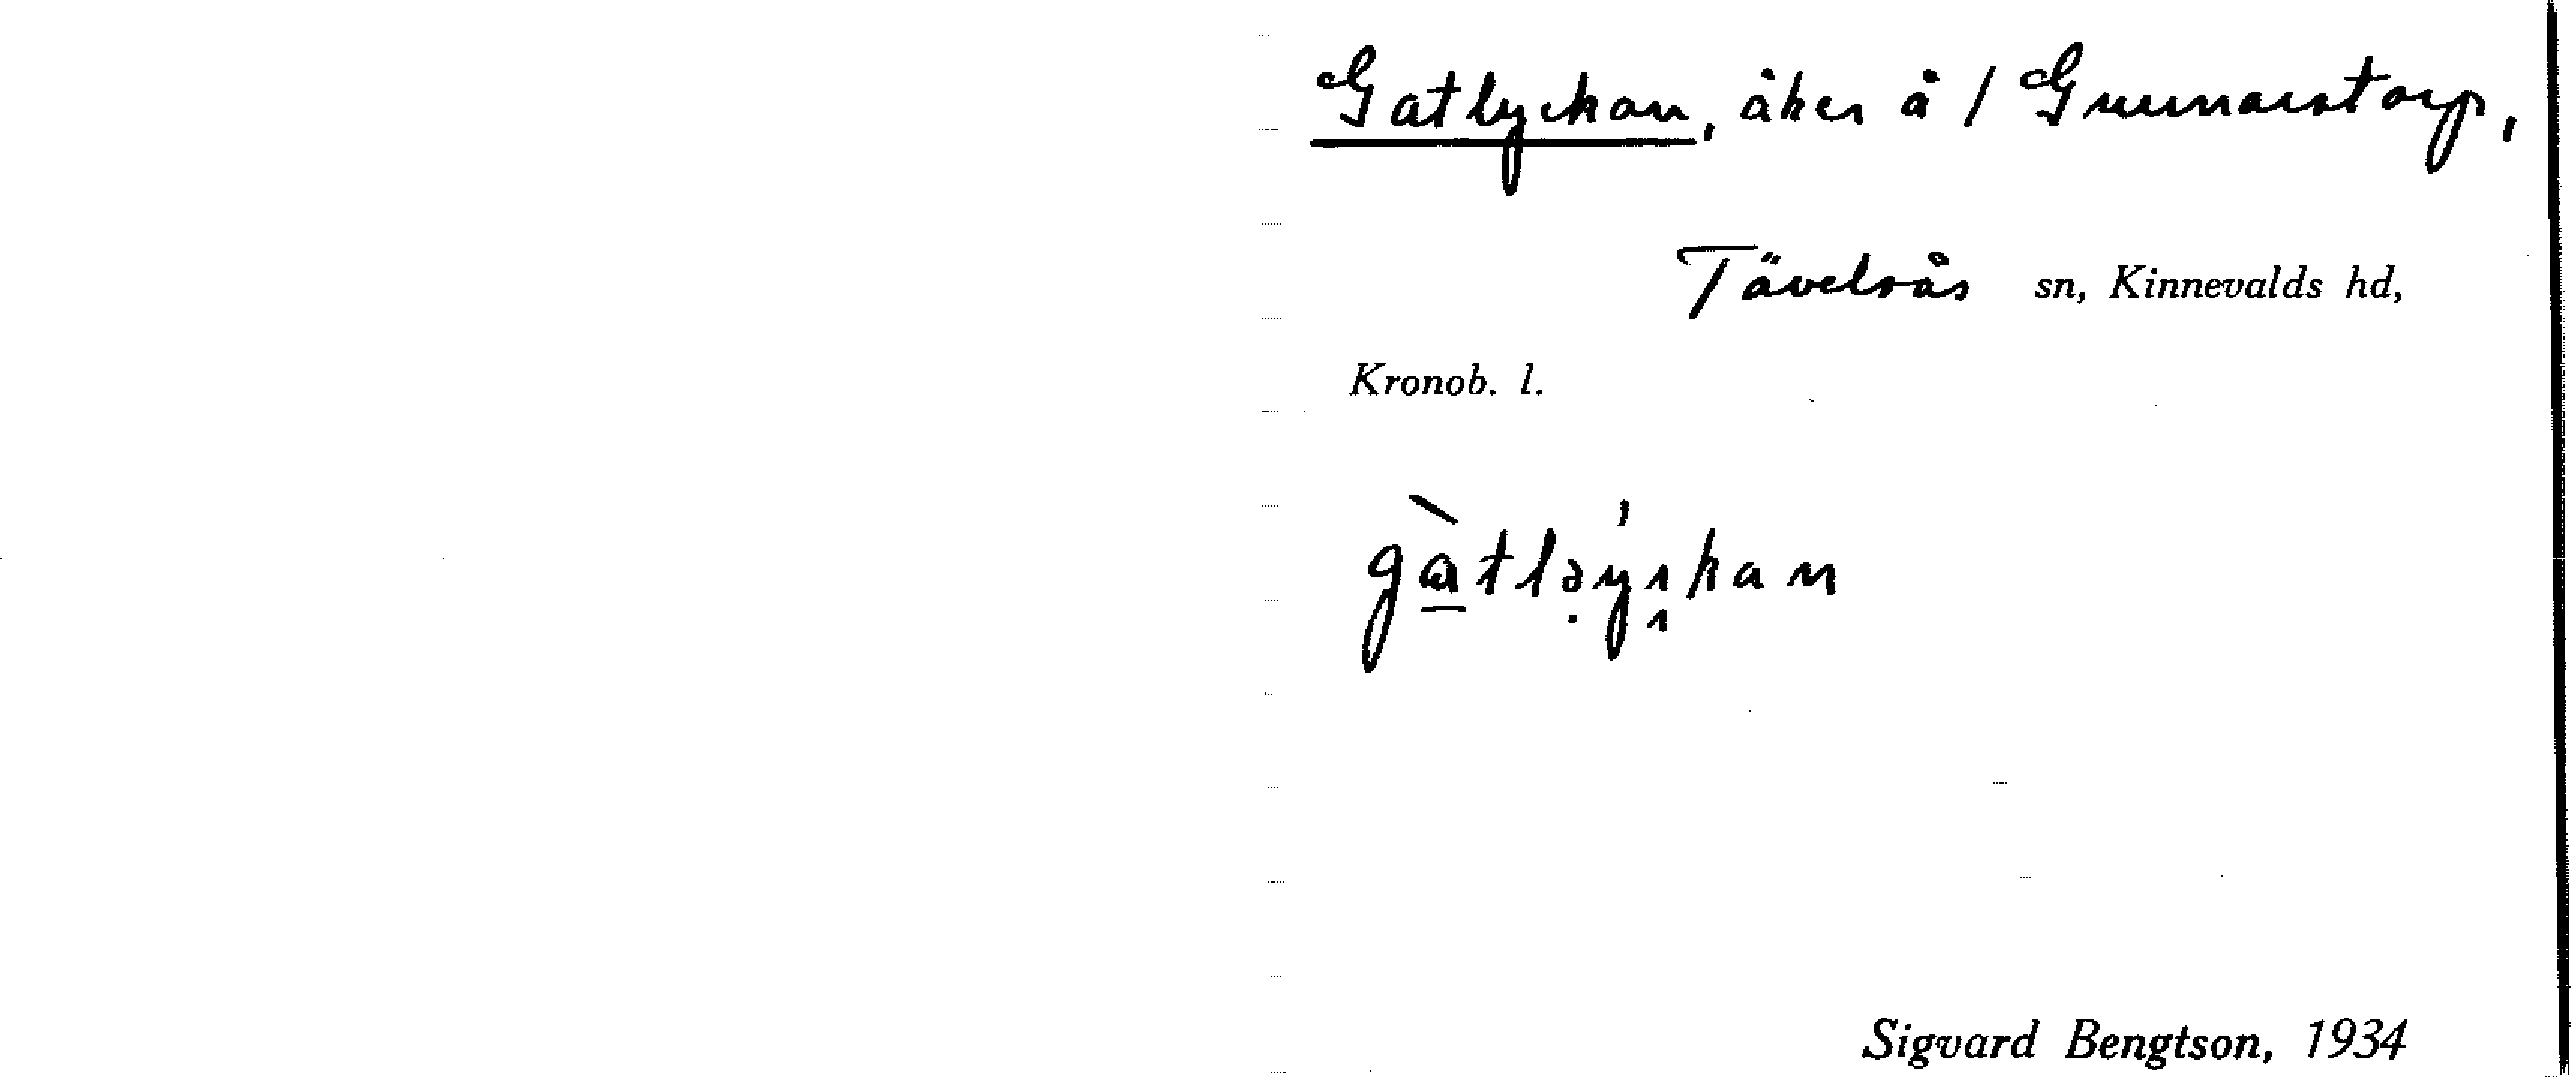 Gatlyckan, åker å / Gunnarstorp,
Tävelsås sn, Kinnevalds hd,
Kronob. l.
Sigvard Bengtson, 1934